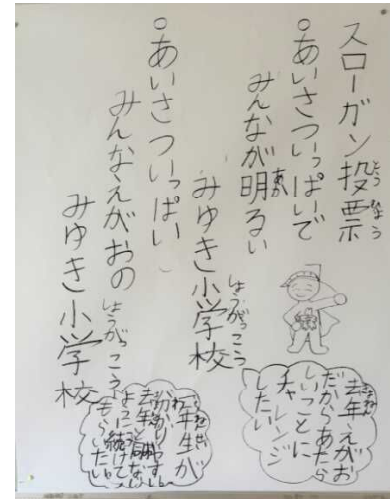 スローガン投票
とうひょう
○あいさついっぱいで
みんなが明るい
あか
みゆき小学校
しょうがっこう
○あいさついっぱい
みんなえがおの
みゆき小学校
しょうがっこう
去年、えがお
だからあたら
しいことに
チャレンジ
したい
一年生が
分かりやすい
去年と同じ
ように続けて
もらいたい